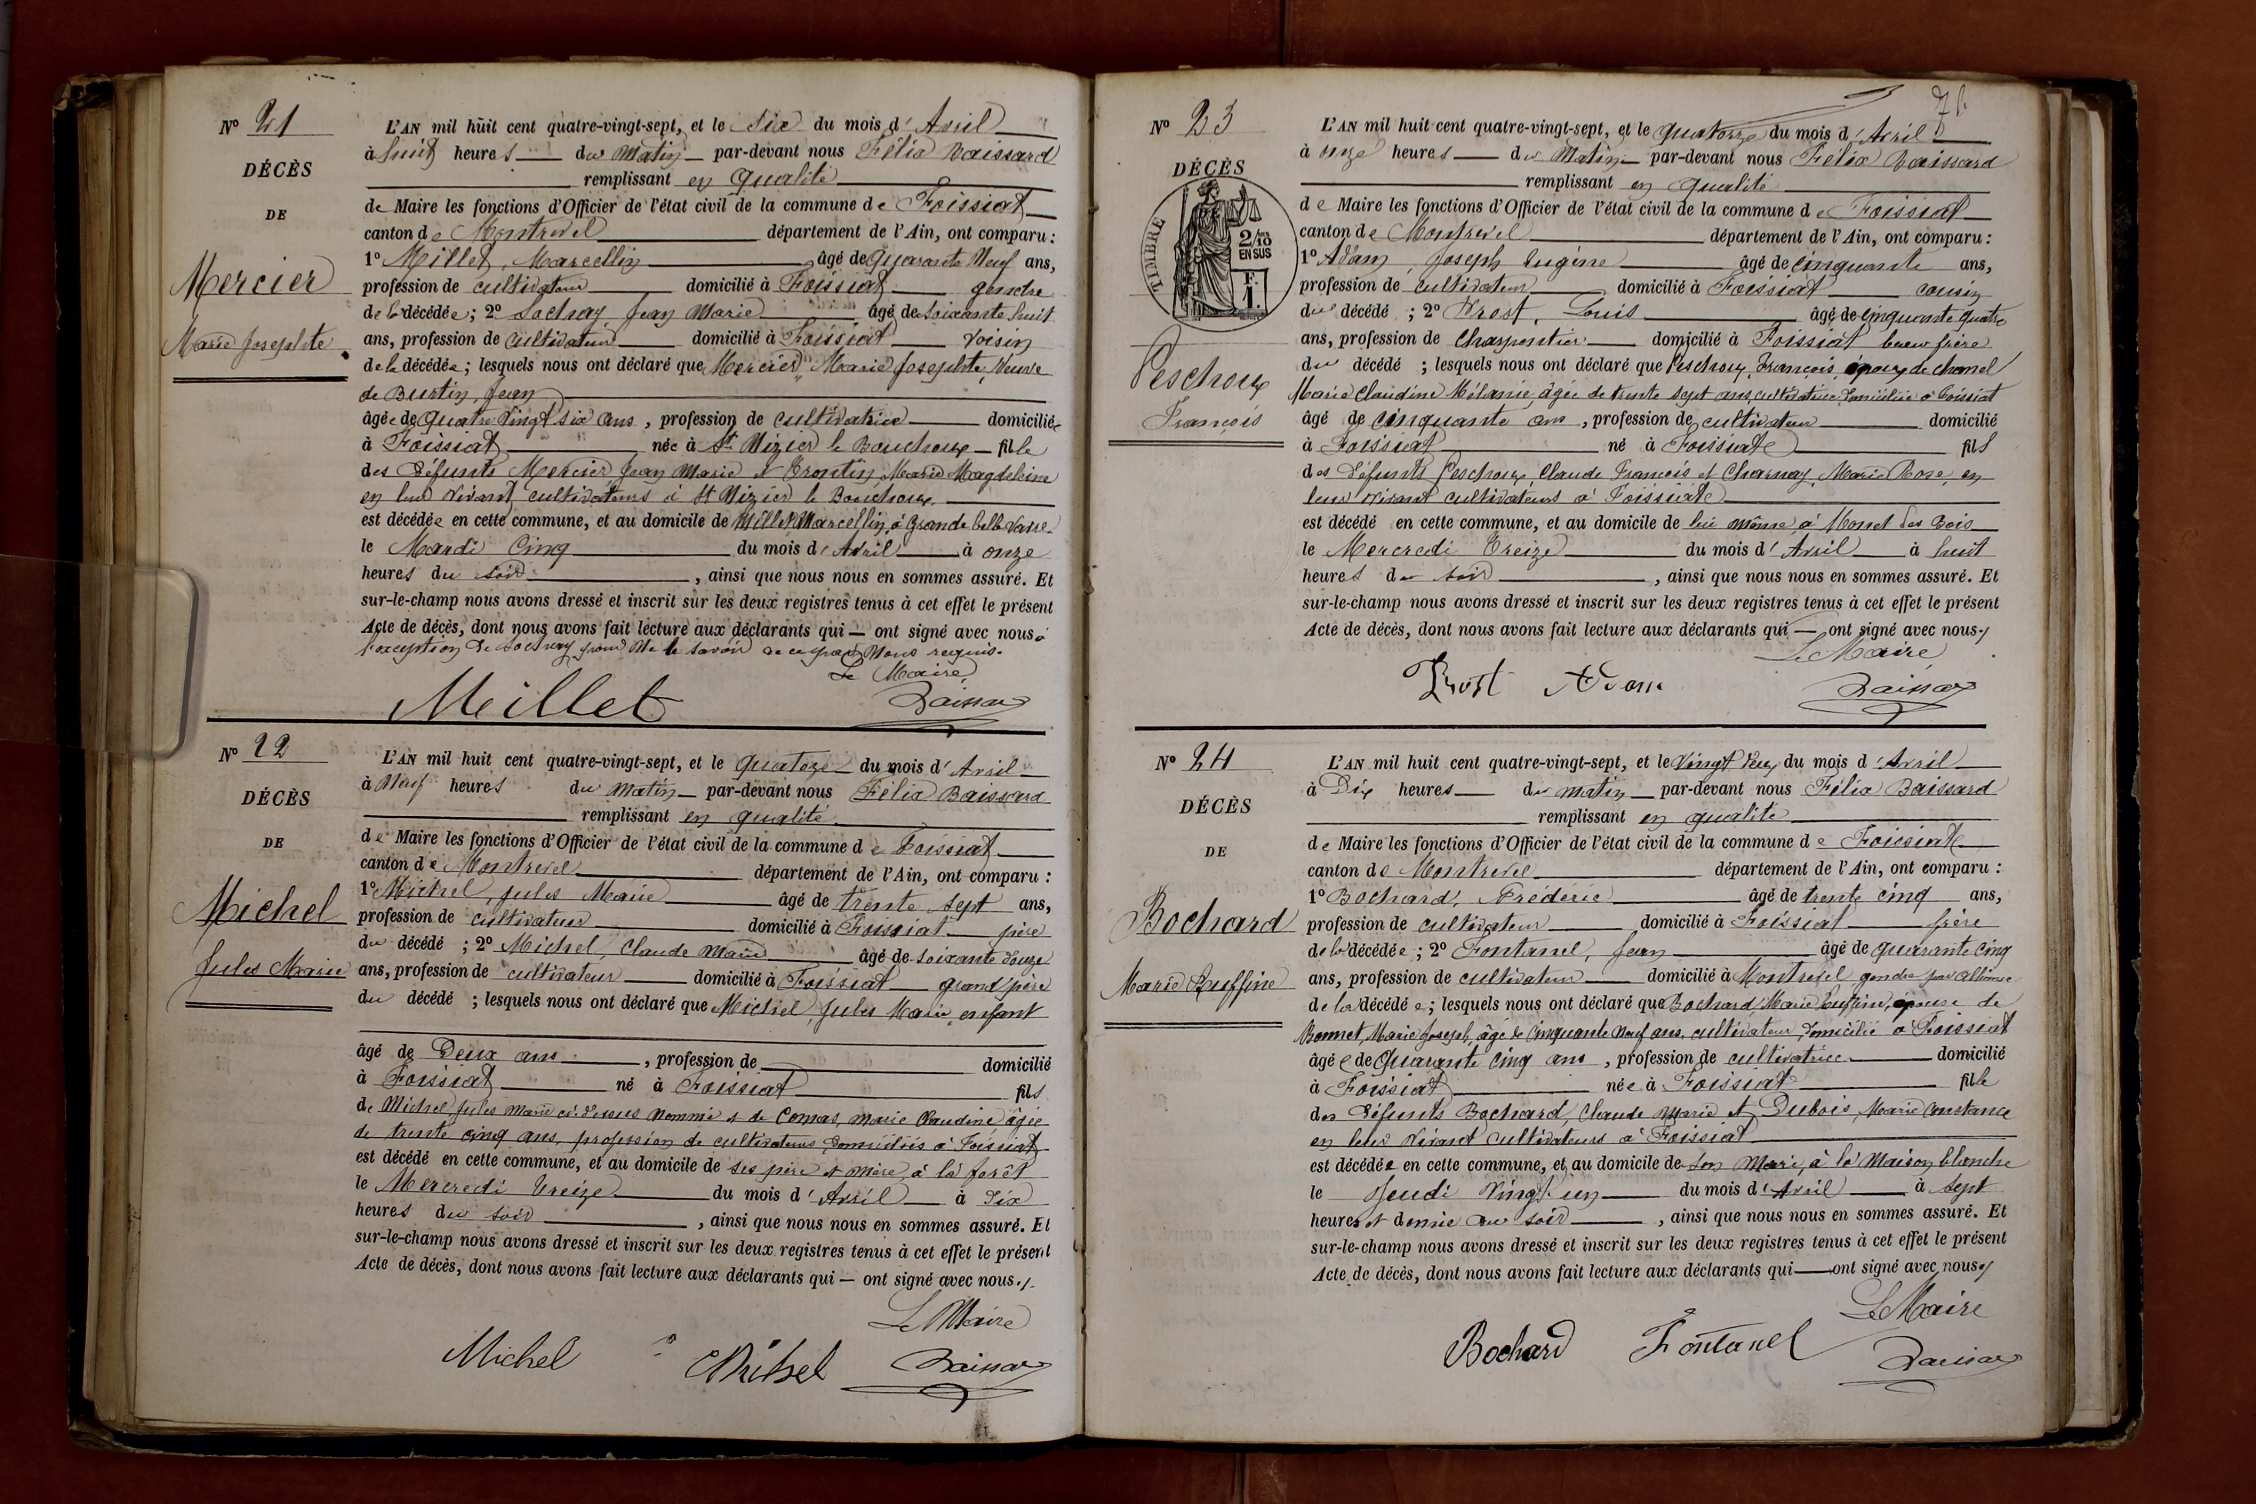 Nº 21
DÉCÈS
DE
Mercier
Marie Josephte
L'AN mil huit cent quatre-vingt-sept, et le Six du mois d'Avril
à huit heures du Matin par-devant nous Félix Baissard
remplissant en qualité
de Maire les fonctions d'Officier de l'état civil de la commune de Foissiat
canton de Montrevel département de l'Ain, ont comparu :
1º Millet, Marcellin âgé de Quarante Neuf ans,
profession de cultivateur domicilié à Foissiat gendre
de la décédée ; 2º Sochay Jean Marie âgé de Soixante huit
ans, profession de Cultivateur domicilié à Foissiat voisin
de la décédée ; lesquels nous ont déclaré que Mercier Marie Josephte, Veuve
de Burtin, Jean
âgée de Quatre Vingt six ans, profession de cultivatrice domiciliée
à Foissiat née à St Nizier le Bouchoux fille
des défunts Mercier Jean Marie et Trontin, Marie Magdeleine
en leur vivant cultivateurs à St Nizier le Bouchoux.
est décédée en cette commune, et au domicile de Millet Marcellin, à Grande
le Mardi Cinq du mois d'Avril à onze
heures du soir, ainsi que nous nous en sommes assuré. Et
sur-le-champ nous avons dressé et inscrit sur les deux registres tenus à cet effet le présent
Acte de décès, dont nous avons fait lecture aux déclarants qui — ont signé avec nous à
l'exception de Sochay pour ne le savoir de ce par Nous requis.
Le Maire
Millet Baissard
Nº 22
DÉCÈS
DE
Michel
Jules Marie
L'AN mil huit cent quatre-vingt-sept, et le Quatoze du mois d'Avril
à Neuf heures du Matin par-devant nous Félix Baissard
remplissant en qualité
de Maire les fonctions d'Officier de l'état civil de la commune de Foissiat
canton de Montrevel département de l'Ain, ont comparu :
1º Michel, Jules Marie âgé de trente sept ans,
profession de cultivateur domicilié à Foissiat père
du décédé ; 2º Michel, Claude Marie âgé de soixante douze
ans, profession de cultivateur domicilié à Foissiat grand père
du décédé ; lesquels nous ont déclaré que Michel, Jules Marie, enfant
âgé de Deux ans, profession de domicilié
à Foissiat né à Foissiat fils
de Michel Jules Marie ci-dessus nommé et de Comas, Marie Claudine âgée
de trente cinq ans, profession de cultivateurs, domiciliés à Foissiat
est décédé en cette commune, et au domicile de ses père et mère, à la forêt
le Mercredi Treize du mois d'Avril à Six
heures du soir, ainsi que nous nous en sommes assuré. Et
sur-le-champ nous avons dressé et inscrit sur les deux registres tenus à cet effet le présent
Acte de décès, dont nous avons fait lecture aux déclarants qui — ont signé avec nous./.
Le Maire
Michel Michel Baissard
76
Nº 23
DÉCÈS
TIMBRE
2/10
EN SUS
F.
1.
Peschoux
François
L'AN mil huit cent quatre-vingt-sept, et le Quatorze du mois d'Avril
à onze heures du Matin par-devant nous Félix Baissard
remplissant en qualité
de Maire les fonctions d'Officier de l'état civil de la commune de Foissiat
canton de Montrevel département de l'Ain, ont comparu :
1º Adam, Joseph Eugène âgé de cinquante ans,
profession de cultivateur domicilié à Foissiat cousin
du décédé ; 2º Prost, Louis âgé de cinquante quatre
ans, profession de Charpentier domicilié à Foissiat beau frère
du décédé ; lesquels nous ont déclaré que Peschoux, François, époux de Chanel
Marie Claudine Mélanie, âgée de trente sept ans, cultivatrice, domiciliée à Foissiat
âgé de cinquante ans, profession de cultivateur domicilié
à Foissiat né à Foissiat fils
des défunts Peschoux, Claude François et Charnay, Marie Rose, en
leur vivant cultivateurs à Foissiat
est décédé en cette commune, et au domicile de lui même à Monet des Bois
le Mercredi Treize du mois d'Avril à huit
heures du soir, ainsi que nous nous en sommes assuré. Et
sur-le-champ nous avons dressé et inscrit sur les deux registres tenus à cet effet le présent
Acte de décès, dont nous avons fait lecture aux déclarants qui — ont signé avec nous./
Le Maire
Prost Adam Baissard
Nº 24
DÉCÈS
DE
Bochard
Marie Ruffine
L'AN mil huit cent quatre-vingt-sept, et le Vingt deux du mois d'Avril
à Dix heures du matin par-devant nous Félix Baissard
remplissant en qualité
de Maire les fonctions d'Officier de l'état civil de la commune de Foissiat
canton de Montrevel département de l'Ain, ont comparu :
1º Bochard, Frédéric âgé de trente cinq ans,
profession de cultivateur domicilié à Foissiat frère
de la décédée ; 2º Fontanel, Jean âgé de quarante cinq
ans, profession de cultivateur domicilié à Montrevel gendre par alliance
de la décédée ; lesquels nous ont déclaré que Bochard, Marie Ruffine, épouse de
Bonnet, Marie Joseph, âgé de cinquante neuf ans, cultivateur, domicilié à Foissiat
âgée de Quarante cinq ans, profession de cultivatrice domicilié
à Foissiat née à Foissiat fille
des défunts Bochard, Claude Marie et Dubois, Marie Constance
en leur vivant cultivateurs à Foissiat
est décédée en cette commune, et au domicile de son Mari, à la Maison blanche
le Jeudi Vingt un du mois d'Avril à sept
heures et demie du soir, ainsi que nous nous en sommes assuré. Et
sur-le-champ nous avons dressé et inscrit sur les deux registres tenus à cet effet le présent
Acte de décès, dont nous avons fait lecture aux déclarants qui — ont signé avec nous./
Le Maire
Bochard Fontanel Baissard